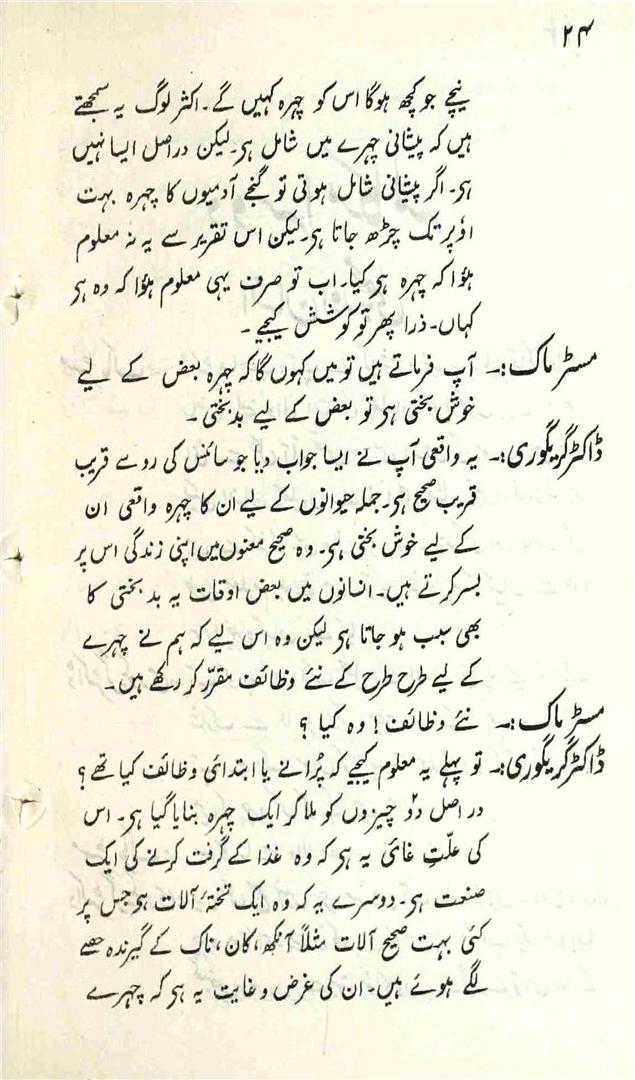 ۲۴
نیچے جو کچھ ہوگا اس کو چہرہ کہیں گے۔ اکثر لوگ یہ سمجھتے
ہیں کہ پیشانی چہرے میں شامل ہی۔ لیکن دراصل ایسا نہیں
ہی۔ اگر پیشانی شامل ہوتی تو گنجے آدمیوں کا چہرہ بہت
اؤپر تک چڑھ جاتا ہی۔ لیکن اس تقریر سے یہ نہ معلوم
ہؤا کہ چہرہ ہی کیا۔ اب تو صرف یہی معلوم ہؤا کہ وہ ہی
کہاں۔ ذرا پھر تو کوشش کیجیے۔
مسٹر ماک:۔ آپ فرماتے ہیں تو میں کہوں گا کہ چہرہ بعض کے لیے
خوش بختی ہی تو بعض کے لیے بدبختی۔
ڈاکٹر گریگوری:۔ یہ واقعی آپ نے ایسا جواب دیا جو سائنس کی رو سے قریب
قریب صحیح ہی۔ جملہ حیوانوں کے لیے ان کا چہرہ واقعی ان
کے لیے خوش بختی ہی۔ وہ صحیح معنوں میں اپنی زندگی اس پر
بسر کرتے ہیں۔ انسانوں میں بعض اوقات یہ بدبختی کا
بھی سبب ہو جاتا ہی لیکن وہ اس لیے کہ ہم نے چہرے
کے لیے طرح طرح کے نئے وظائف مقرّر کر رکھے ہیں۔
مسٹر ماک:۔ نئے وظائف! وہ کیا؟
ڈاکٹر گریگوری:۔ تو پہلے یہ معلوم کیجیے کہ پُرانے یا ابتدائی وظائف کیا تھے؟
دراصل دو چیزوں کو ملا کر ایک چہرہ بنایا گیا ہی۔ اس
کی علّتِ غائی یہ ہی کہ وہ غذا کے گرفت کرنے کی ایک
صنعت ہی۔ دوسرے یہ کہ وہ ایک تختۂ آلات ہی جس پر
کئی بہت صحیح آلات مثلاً آنکھ، کان، ناک کے گیرندہ حصے
لگے ہوئے ہیں۔ ان کی غرض و غایت یہ ہی کہ چہرے